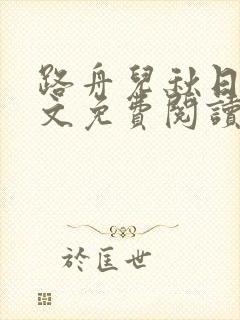 路舟兒秋日
文免費閱讀
於匡世